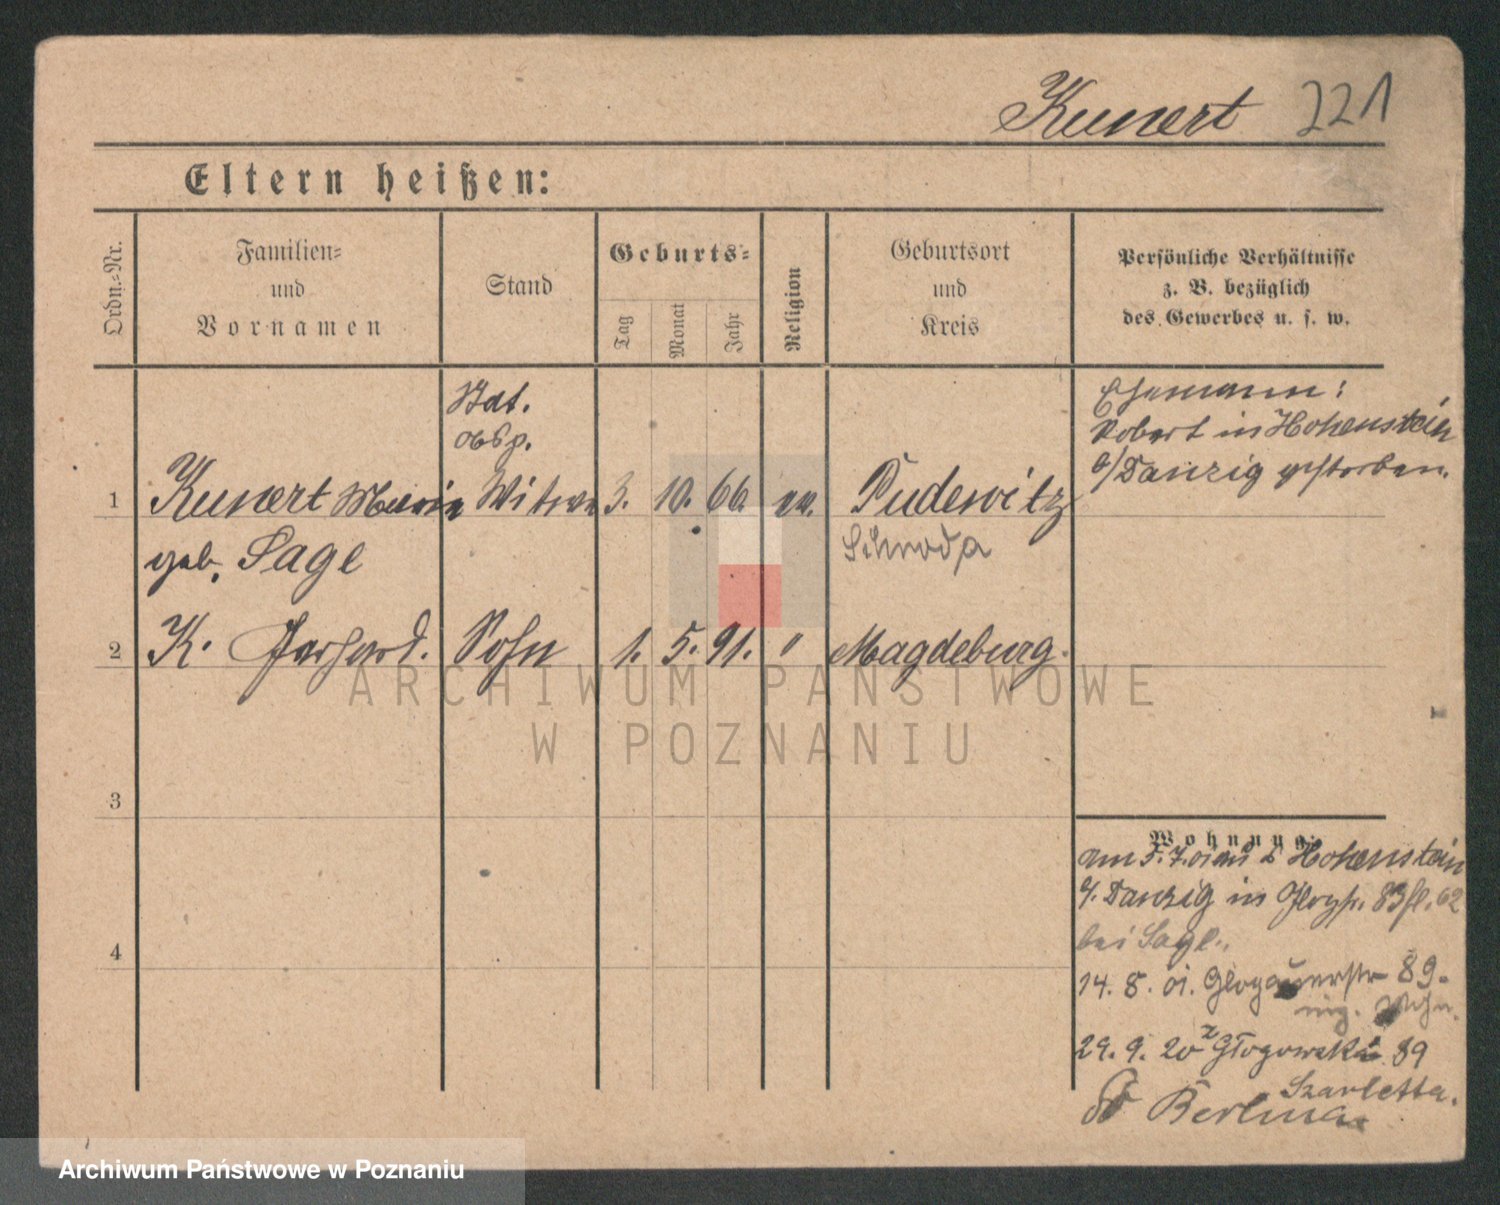 Kunert 221
Eltern heißen:
Ordn.-Nr.
Familien-
und
Vornamen
Stand
Geburts-
Tag
Monat
Jahr
Religion
Geburtsort
und
Kreis
Persönliche Verhältnisse
z. B. bezüglich
des Gewerbes u. s. w.
Ehemann:
Robert in Hohenstein
b/Danzig gestorben.
1 Kunert Maria Witwe 3. 10. 66. ev. Pudewitz
geb. Sage Schroda
2 K. Gerhard. Sohn 1. 5. 91. " Magdeburg.
3
4
Wohnung:
am 5.7.01 aus Hohenstein
b. Danzig in Glogstr. 83 62
bei Sage.
14. 8. 01. Glogauerstr 89.
eig. Wohn.
29. 9. 20 z Głogowska 89
Szarletta.
Berlina
ARCHIWUM PAŃSTWOWE
W POZNANIU
Archiwum Państwowe w Poznaniu